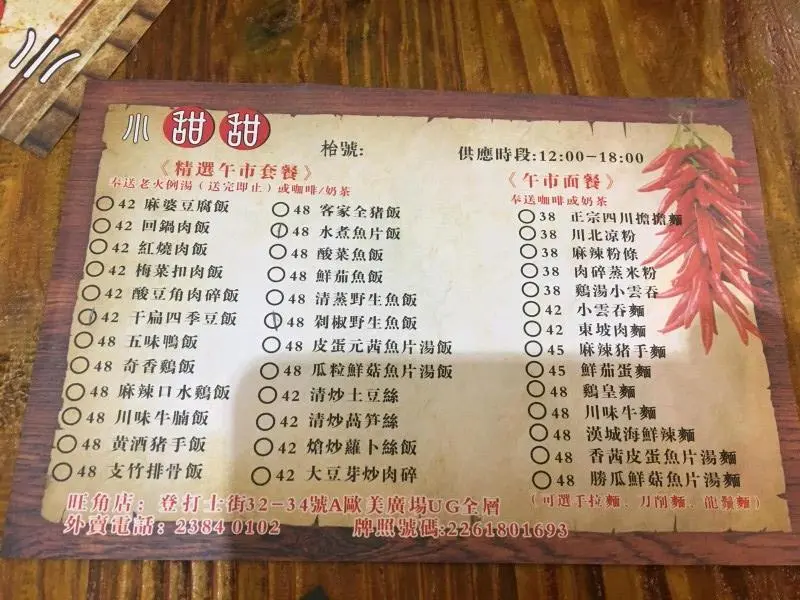 小甜甜
枱號:
供應時段:12:00-18:00
《精選午市套餐》
奉送老火例湯(送完即止)或咖啡/奶茶
42 麻婆豆腐飯
42 回鍋肉飯
42 紅燒肉飯
42 梅菜扣肉飯
42 酸豆角肉碎飯
42 干扁四季豆飯
48 五味鴨飯
48 奇香鷄飯
48 麻辣口水鷄飯
48 川味牛腩飯
48 黄酒猪手飯
48 支竹排骨飯
48 客家全猪飯
48 水煮魚片飯
48 酸菜魚飯
48 鮮茄魚飯
48 清蒸野生魚飯
48 剁椒野生魚飯
48 皮蛋元茜魚片湯飯
48 瓜粒鮮菇魚片湯飯
42 清炒土豆絲
42 清炒萵笋絲
42 熗炒蘿卜絲飯
42 大豆芽炒肉碎
《午市面餐》
奉送咖啡或奶茶
38 正宗四川擔擔麵
38 川北凉粉
38 麻辣粉條
38 肉碎蒸米粉
38 鷄湯小雲吞
42 小雲吞麵
42 東坡肉麵
45 麻辣猪手麵
45 鮮茄蛋麵
48 鷄皇麵
48 川味牛麵
48 漢城海鮮辣麵
48 香茜皮蛋魚片湯麵
48 勝瓜鮮菇魚片湯麵
(可選手拉麵、刀削麵、龍鬚麵)
旺角店: 登打士街32-34號A歐美廣場UG全層
外賣電話: 2384 0102
牌照號碼:2261801693